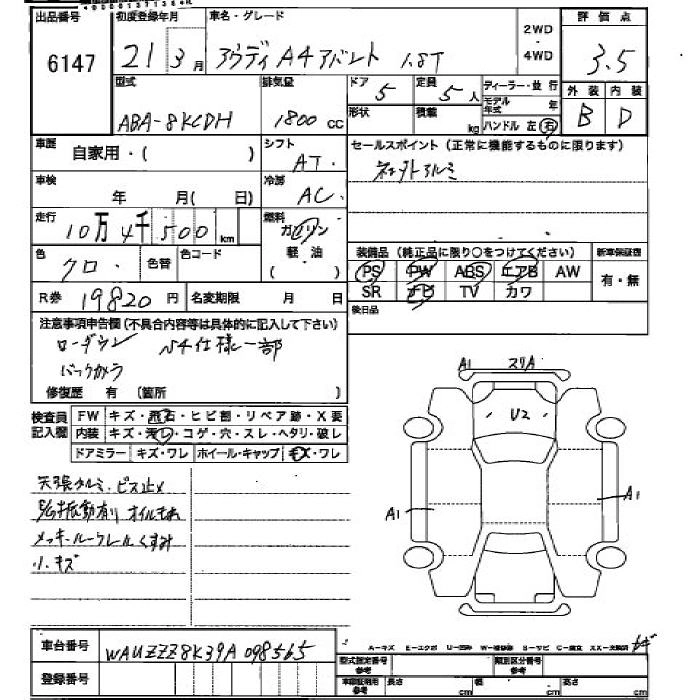 出品番号 初度登録年月 車名・グレード 2WD 評価点
6147 21 3月 アウディA4アバント 1.8T ・ 4WD 3.5
型式 排気量 ドア 定員 ディーラー・並行 外装 内装
ABA-8KCDH 1800cc 5 5人 モデル年式 年 B D
形状 積載 kg ハンドル 左 右
車歴 自家用・( ) シフト AT. セールスポイント(正常に機能するものに限ります)
車検 年 月( 日) 冷房 AC. 社外アルミ
走行 10万4千500km 燃料 ガソリン
色 クロ. 色替 色コード 軽油 装備品(純正品に限り○をつけてください) 新車保証書
( ) PS PW ABS エアB AW 有・無
R券 19820円 名変期限 月 日 SR ナビ TV カワ
注意事項申告欄(不具合内容等は具体的に記入して下さい) 後日品
ローダウン S4仕様一部
バックカメラ
修復歴 有 (箇所 )
検査員記入欄 FW キズ・飛石・ヒビ割・リペア跡・X要
内装 キズ・汚レ・コゲ・穴・スレ・ヘタリ・破レ
ドアミラー キズ・ワレ ホイール・キャップ キズ・ワレ
A1 スリA
U2
A1
A1
天張タルミ.ピス止メ
振動有り オイルモレ
メッキ.ルーフレールくすみ
小キズ
車台番号 WAUZZZ8K39A098565
A−キズ E−エクボ
登録番号 型式指定番号参考 類別区分番号参考
長さ cm 幅 cm 高さ cm